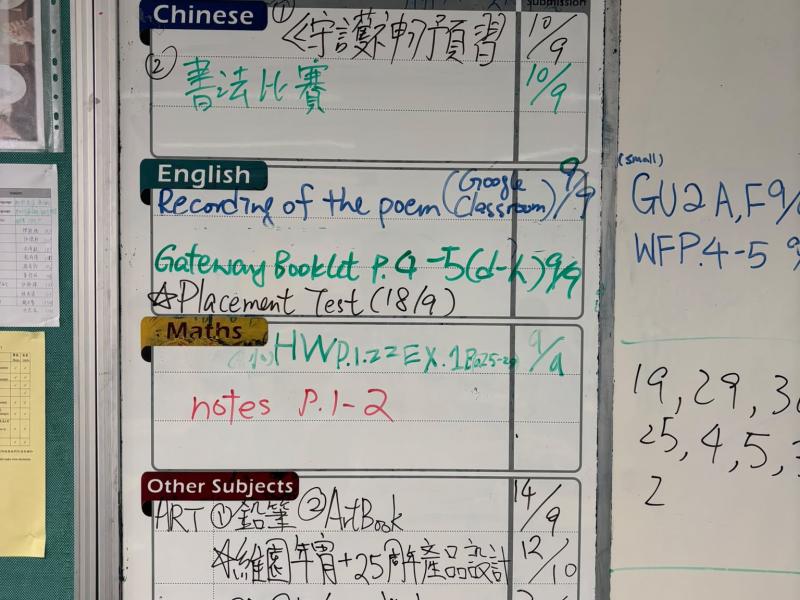 Submission
Chinese
① 《守護神》預習 10/9
② 書法比賽 10/9
English
Recording of the poem (Google Classroom) 9/9
Gateway Booklet P.4-5(d-h) 9/9
☆Placement Test (18/9)
Maths
HW P.1.22 EX.1B 9/9
notes P.1-2
Other Subjects
ART ①鉛筆 ②ArtBook 14/9
☆維園年宵+25周年產品設計 12/10
(small)
GU2A,F 9/
WFP.4-5
19, 29, 3
25, 4, 5,
2